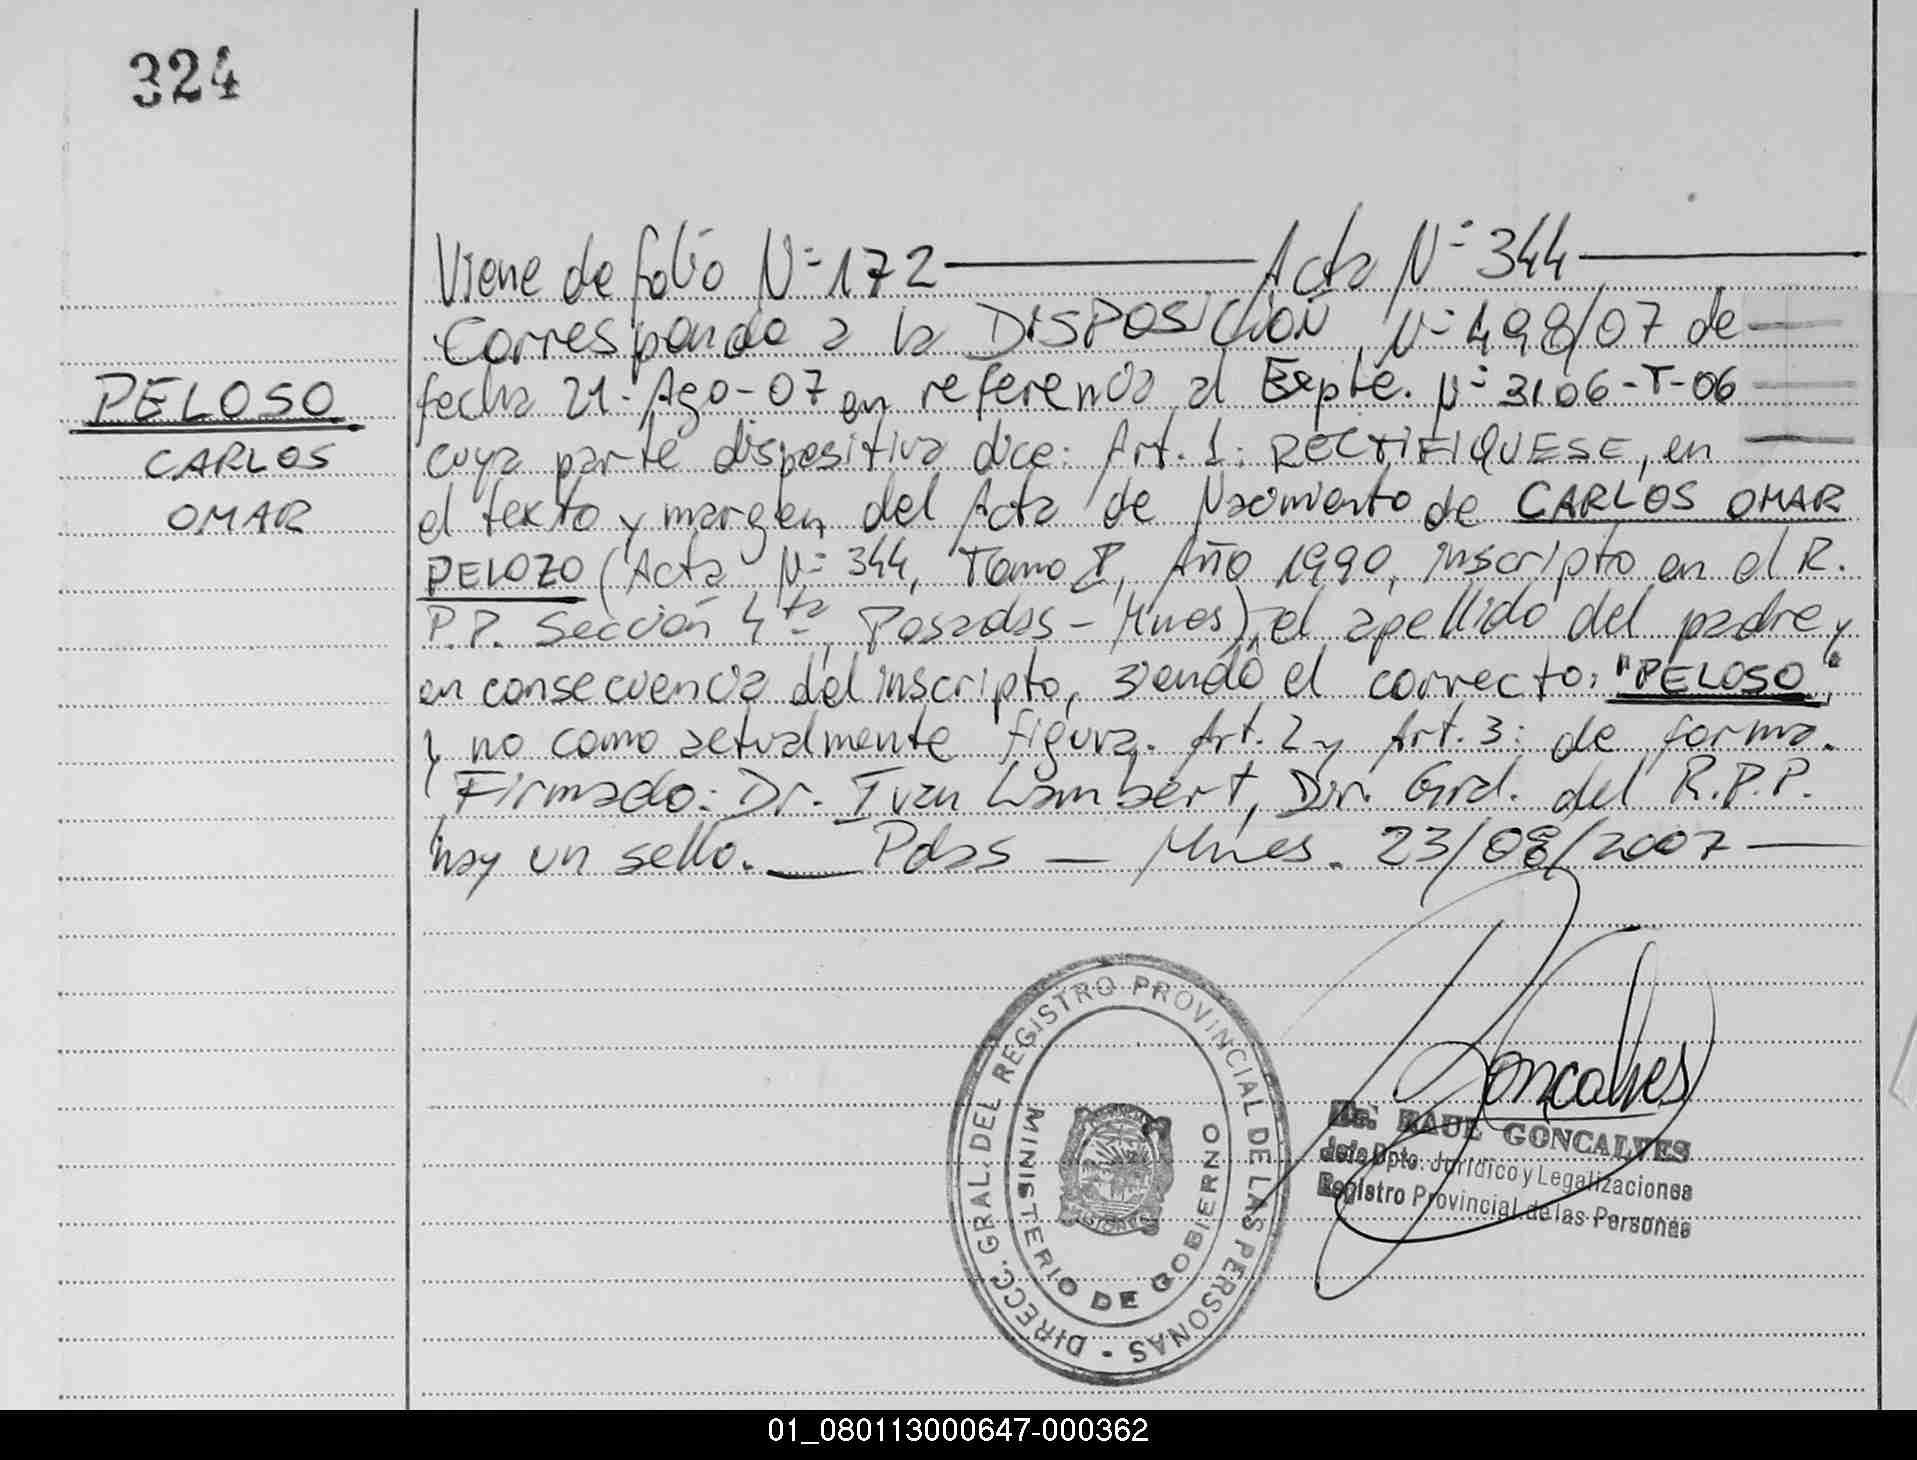 324
Viene de folio N= 172 Acta N= 344
Corresponde a la DISPOSICIÓN N= 498/07 de
PELOSO
fecha 21-Ago-07 en referencia al Expte. N= 3106-T-06
CARLOS
cuya parte dispositiva dice: Art. 1: RECTIFIQUESE, en
OMAR
el texto y margen del Acta de Nacimiento de CARLOS OMAR
PELOZO (Acta N= 344, Tomo I, Año 1990, inscripto en el R.
P.P. Sección 4ta, Posadas - Mnes), el apellido del padre y
en consecuencia del inscripto, siendo el correcto: "PELOSO",
y no como actualmente figura. Art. 2 y Art. 3: de forma.
Firmado: Dr. Ivan Lambert, Dir. Gral. del R.P.P.
hay un sello. Pdas - Mnes. 23/08/2007
DIRECC. GRAL. DEL REGISTRO PROVINCIAL DE LAS PERSONAS
MINISTERIO DE GOBIERNO
MISIONES
Goncalves
Dr. RAUL GONCALVES
Jefe Dpto. Jurídico y Legalizaciones
Registro Provincial de las Personas
01_080113000647-000362